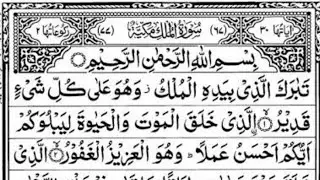 اٰيَاتُهَا ٣٠ (٦٧) سُوْرَةُ الْمُلْكِ مَكِّيَّةٌ (٧٧) رُكُوْعَاتُهَا ٢
بِسْمِ اللّٰهِ الرَّحْمٰنِ الرَّحِيْمِ
تَبٰرَكَ الَّذِىْ بِيَدِهِ الْمُلْكُ ز وَهُوَ عَلٰى كُلِّ شَىْءٍ
قَدِيْرُ ۨ ۝١ الَّذِىْ خَلَقَ الْمَوْتَ وَالْحَيٰوةَ لِيَبْلُوَكُمْ
اَيُّكُمْ اَحْسَنُ عَمَلًا ؕ وَهُوَ الْعَزِيْزُ الْغَفُوْرُ ۝٢ الَّذِىْ